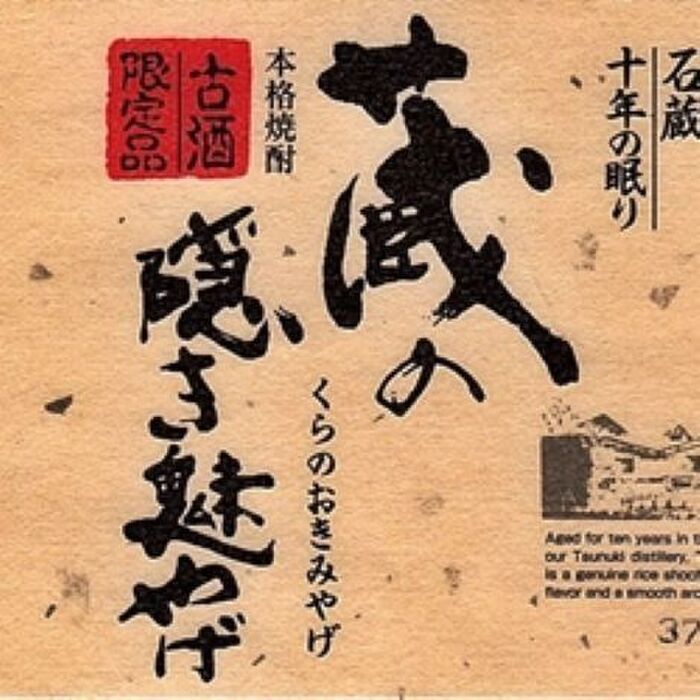 石蔵
十年の眠り
蔵の
くらのおきみやげ
本格焼酎
隠き魅やげ
古酒
限定品
Aged for ten years in t
our Tsunuki distillery, "
is a genuine rice shoc
flavor and a smooth aro
37